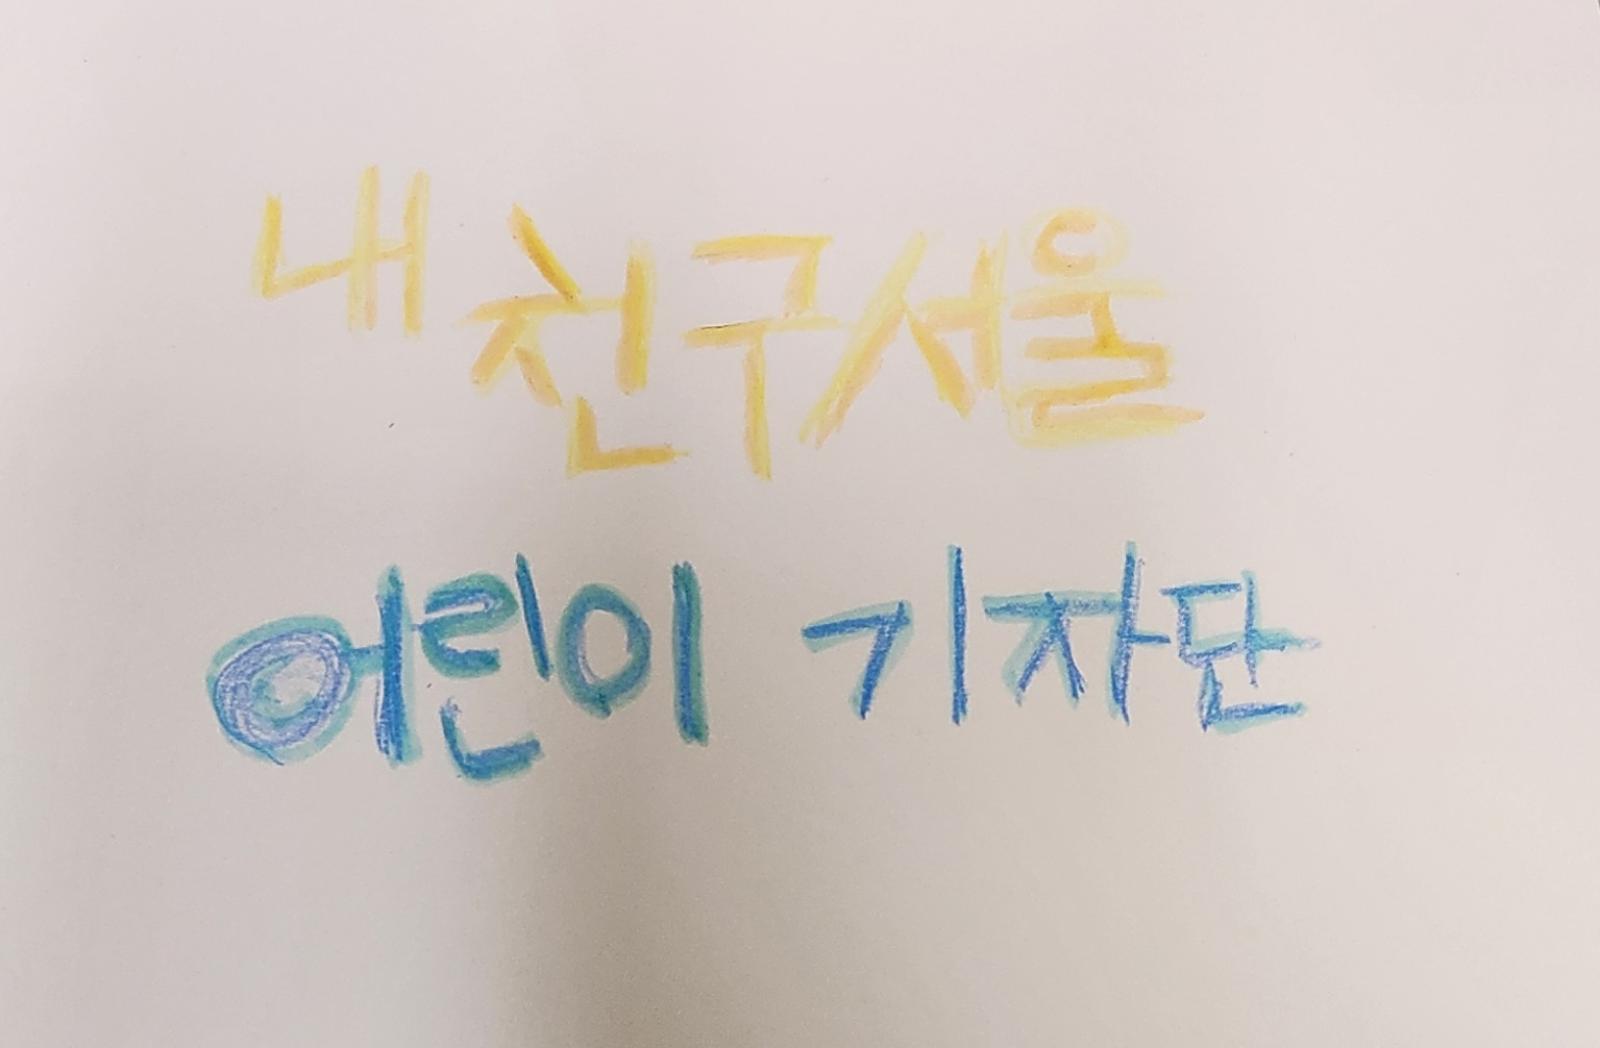 내친구서울
어린이 기자단